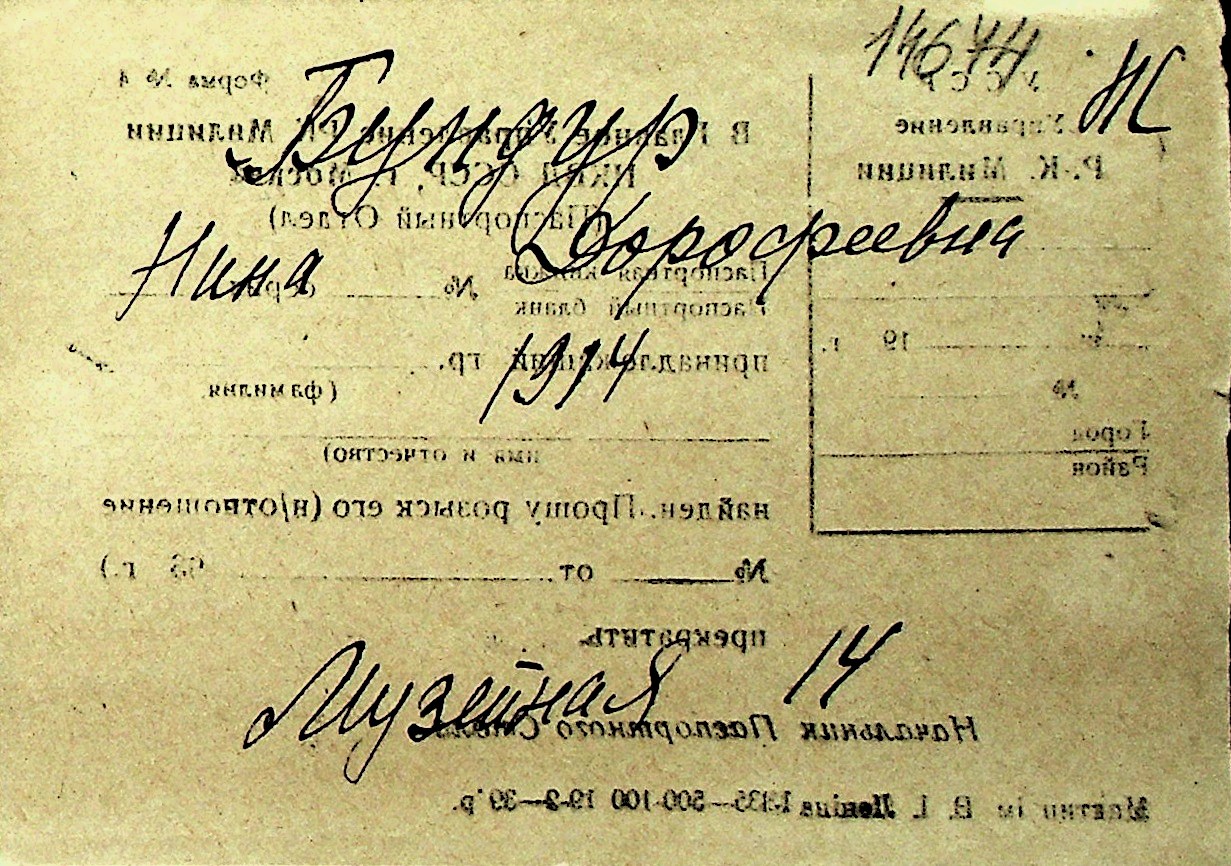 14674 Ж
Бундур
Нина Дорофеевна
1914
Музейная 14
Форма № 4
В Главное Управление Р.К Милиции
НКВД СССР, г. Москва
(Паспортный Отдел)
Паспортная книжка
Паспортный бланк
№
принадлежащий гр.
(фамилия
имя и отчество)
найден. Прошу розыск его (н/отношение
№ от 193 г.)
прекратить.
Начальник Паспортного Стола
УССР
Управление
Р.-К. Милиции
19 г.
№
Город
Район
ім В. І. Леніна 1-135—500-100 19-2—39 р.